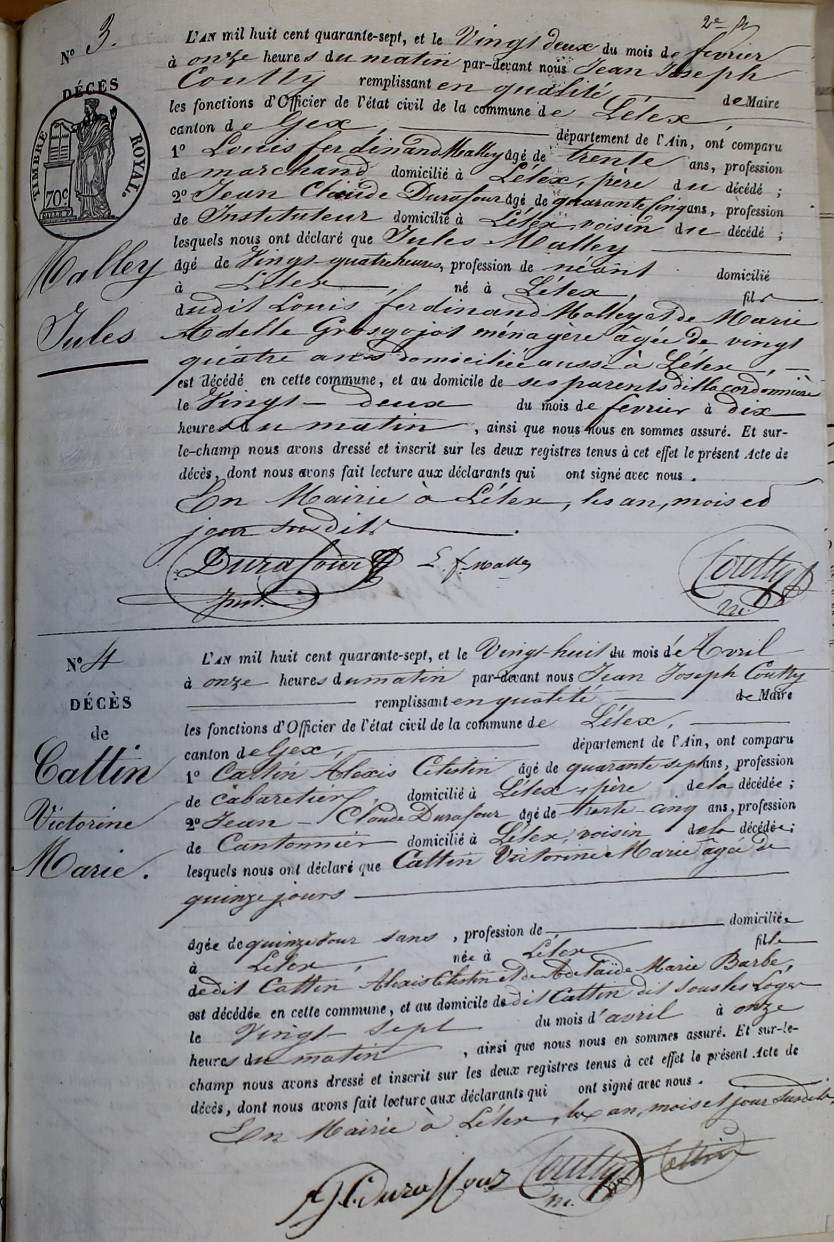 2e
N° 3.
DÉCÈS
TIMBRE ROYAL.
70c
Malley
Jules
L'AN mil huit cent quarante-sept, et le Vingt deux du mois de février
à onze heures du matin par-devant nous Jean Joseph
Coutty remplissant en qualité de Maire
les fonctions d'Officier de l'état civil de la commune de Lélex,
canton de Gex département de l'Ain, ont comparu
1° Louis ferdinand Malley âgé de trente ans, profession
de marchand domicilié à Lélex, père du décédé ;
2° Jean Claude Durafour âgé de quarante cinq ans, profession
de Instituteur domicilié à Lélex voisin du décédé ;
lesquels nous ont déclaré que Jules Malley
âgé de Vingt quatre heures, profession de néant domicilié
à Lélex, né à Lélex, fils
dudit Louis ferdinand Malley et de Marie
Adelle Grosgojat ménagère âgée de vingt
quatre ans domiciliée aussi à Lélex,
est décédé en cette commune, et au domicile de ses parents dit la cordonnière
le Vingt-deux du mois de février à dix
heures du matin, ainsi que nous nous en sommes assuré. Et sur-
le-champ nous avons dressé et inscrit sur les deux registres tenus à cet effet le présent Acte de
décès, dont nous avons fait lecture aux déclarants qui ont signé avec nous.
En Mairie à Lélex, les an, mois et
jour susdits
Durafour L. f. Malley Coutty
inst. me.
N° 4
DÉCÈS
de
Cattin
Victorine
Marie.
L'AN mil huit cent quarante-sept, et le Vingt-huit du mois d'Avril
à onze heures du matin par-devant nous Jean Joseph Coutty
remplissant en qualité de Maire
les fonctions d'Officier de l'état civil de la commune de Lélex,
canton de Gex, département de l'Ain, ont comparu
1° Cattin Alexis Célestin âgé de quarante sept ans, profession
de cabaretier domicilié à Lélex, père de la décédée ;
2° Jean-Claude Durafour âgé de trente-cinq ans, profession
de Cantonnier domicilié à Lélex, voisin de la décédée ;
lesquels nous ont déclaré que Cattin Victorine Marie âgée de
quinze jours
âgée de quinze jour sans, profession de domiciliée
à Lélex, née à Lélex fille
dedit Cattin Alexis Célestin et de Adélaïde Marie Barbe,
est décédée en cette commune, et au domicile dedit Cattin dit sous les Loges
le Vingt sept du mois d'avril à onze
heures du matin, ainsi que nous nous en sommes assuré. Et sur-le-
champ nous avons dressé et inscrit sur les deux registres tenus à cet effet le présent Acte de
décès, dont nous avons fait lecture aux déclarants qui ont signé avec nous.
En Mairie à Lélex, les an, mois et jour susdits,
J. C. Durafour Coutty Cattin
me.